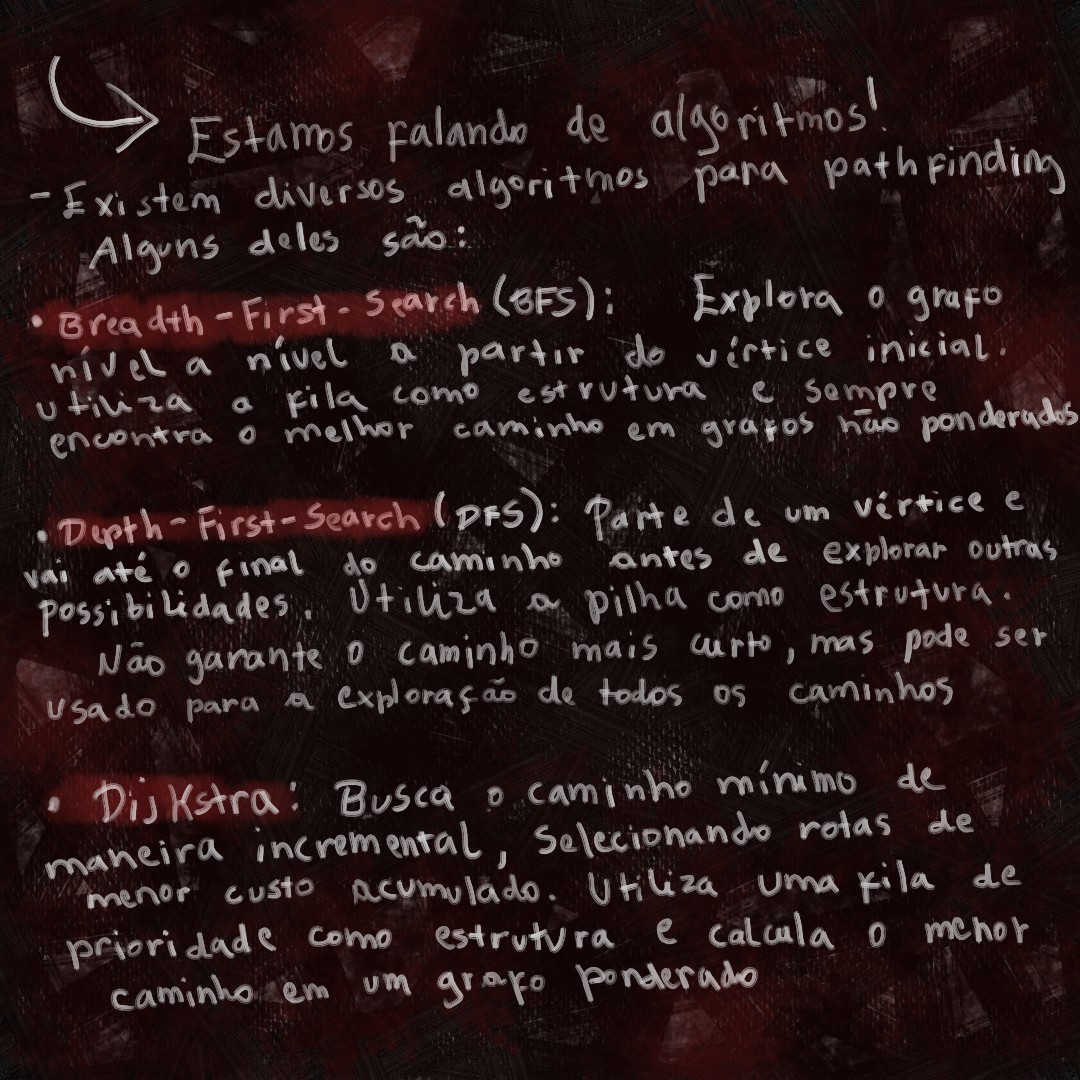 Estamos falando de algoritmos!
- Existem diversos algoritmos para pathfinding
Alguns deles são:
• Breadth-First-Search (BFS): Explora o grafo
nível a nível a partir do vértice inicial.
utiliza a fila como estrutura e sempre
encontra o melhor caminho em grafos não ponderados
• Depth-First-Search (DFS): Parte de um vértice e
vai até o final do caminho antes de explorar outras
possibilidades. Utiliza a pilha como estrutura.
Não garante o caminho mais curto, mas pode ser
usado para a exploração de todos os caminhos
• Dijkstra: Busca o caminho mínimo de
maneira incremental, Selecionando rotas de
menor custo acumulado. Utiliza uma fila de
prioridade como estrutura e calcula o menor
caminho em um grafo ponderado